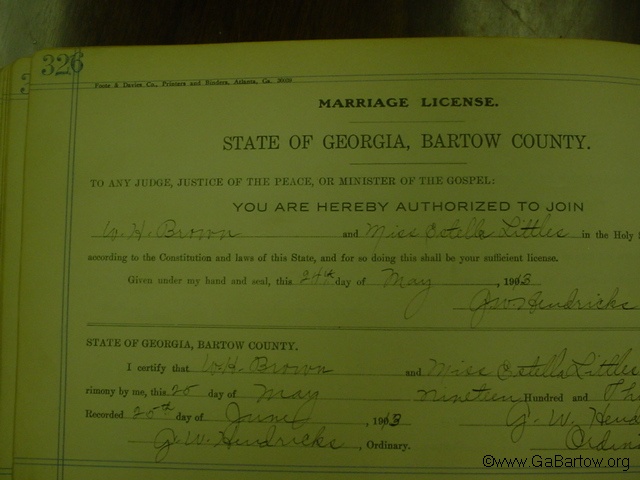 326
Foote & Davies Co., Printers and Binders, Atlanta, Ga.
MARRIAGE LICENSE.
STATE OF GEORGIA, BARTOW COUNTY.
TO ANY JUDGE, JUSTICE OF THE PEACE, OR MINISTER OF THE GOSPEL:
YOU ARE HEREBY AUTHORIZED TO JOIN
W. H. Brown and Miss Estella Littles in the Holy
according to the Constitution and laws of this State, and for so doing this shall be your sufficient license.
Given under my hand and seal, this 24th day of May, 1913
J W Hendricks
STATE OF GEORGIA, BARTOW COUNTY.
I certify that W. H. Brown and Miss Estella Littles
rimony by me, this 25 day of May nineteen Hundred and Thi
Recorded 20th day of June, 1913 J. W. Hend
J. W. Hendricks, Ordinary. Ordin
©www.GaBartow.org